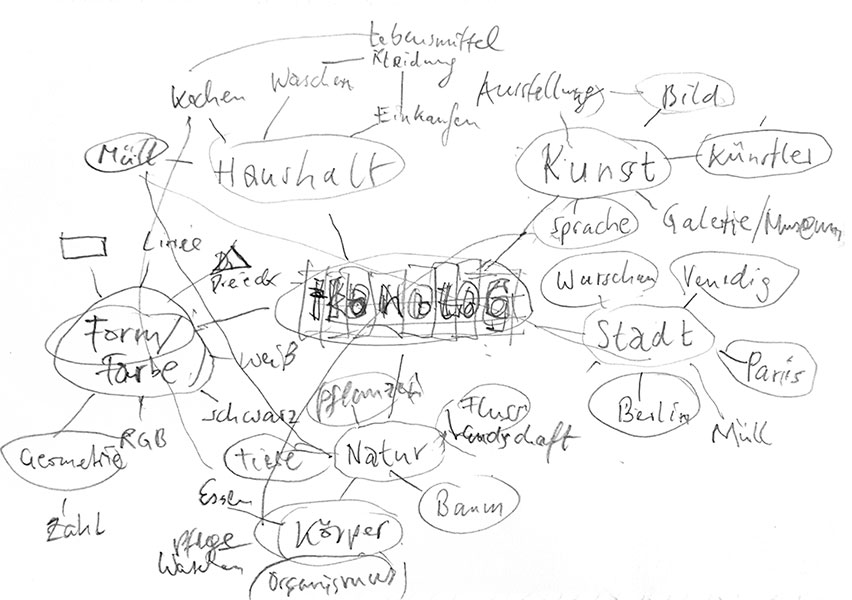 Lebensmittel
Kleidung
Kochen
Waschen
Einkaufen
Ausstellung
Bild
Müll
Haushalt
Kunst
Künstler
Sprache
Galerie/Museum
Linie
Dreieck
Warschau
Venedig
Form/
Farbe
Stadt
weiß
Paris
Pflanzen
Fluss
Landschaft
Berlin
schwarz
RGB
Müll
Geometrie
Tiere
Natur
Baum
Essen
Zahl
Körper
Pflege
Waschen
Organismus